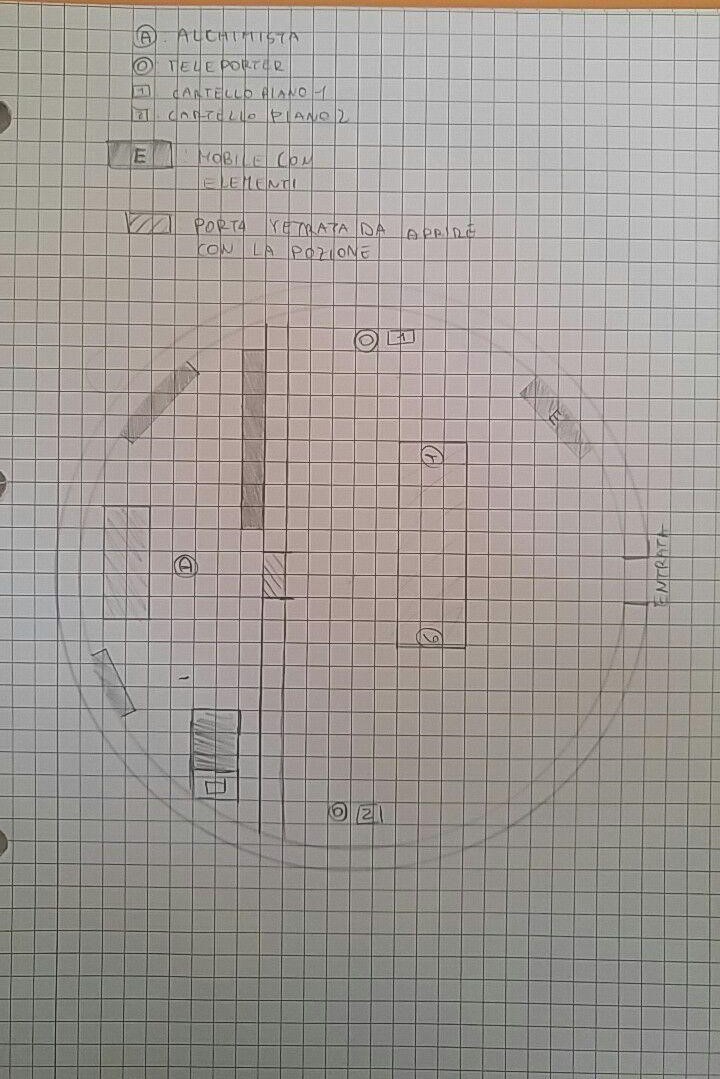 A : ALCHIMISTA
O TELEPORTER
1 CARTELLO PIANO 1
2 CARTELLO PIANO 2
E : MOBILE CON
ELEMENTI
PORTA VETRATA DA APRIRE
CON LA POZIONE
O 1
E
A
ENTRATA
O 2